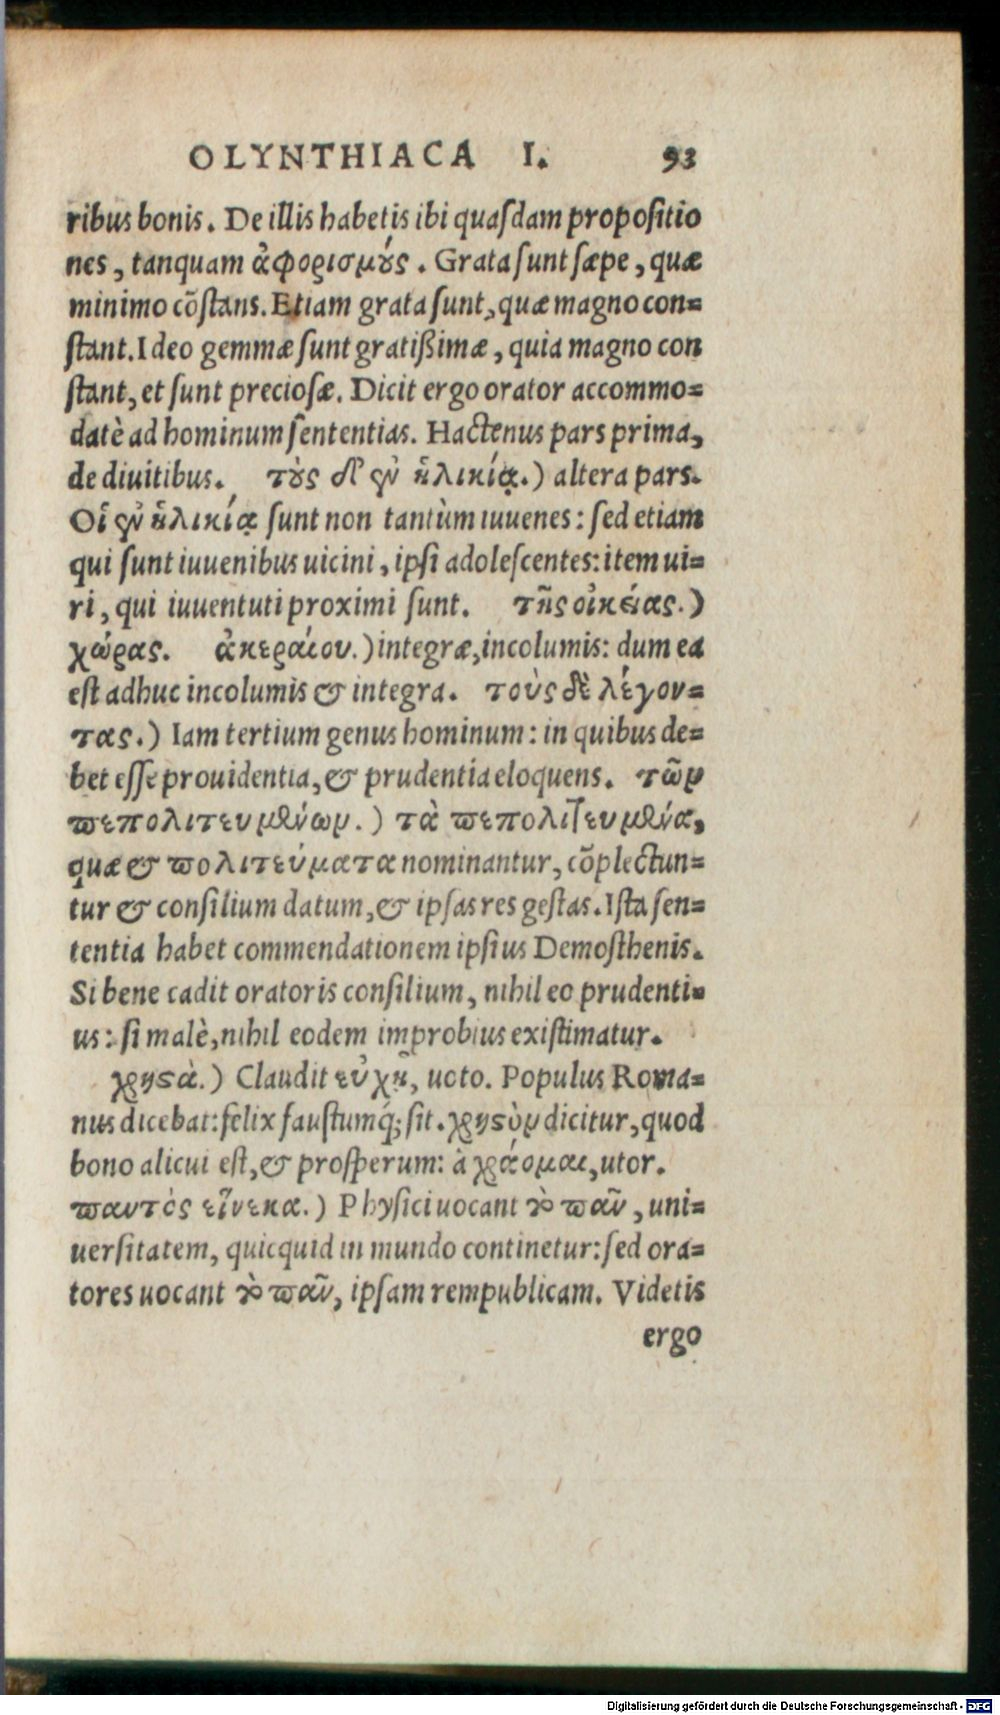 OLYNTHIACA I. 93
ribus bonis. De illis habetis ibi quasdam propositio
nes, tanquam ἀφορισμούς. Grata sunt sæpe, quæ
minimo cōstans. Etiam grata sunt, quæ magno con=
stant. Ideo gemmæ sunt gratißimæ, quia magno con
stant, et sunt preciosæ. Dicit ergo orator accommo=
datè ad hominum sententias. Hactenus pars prima,
de diuitibus. τοὺς δ' ἐν ἡλικίᾳ.) altera pars.
Οἱ ἐν ἡλικίᾳ sunt non tantùm iuuenes: sed etiam
qui sunt iuuenibus uicini, ipsi adolescentes: item ui=
ri, qui iuuentuti proximi sunt. τῆς οἰκείας.)
χώρας. ἀκεραίου.) integræ, incolumis: dum ea
est adhuc incolumis & integra. τοὺς δὲ λέγον=
τας.) Iam tertium genus hominum: in quibus de=
bet esse prouidentia, & prudentia eloquens. τῶν
πεπολιτευμένων.) τὰ πεπολιτευμένα,
quæ & πολιτεύματα nominantur, cōplectun=
tur & consilium datum, & ipsas res gestas. Ista sen=
tentia habet commendationem ipsius Demosthenis.
Si bene cadit oratoris consilium, nihil eo prudenti=
us: si malè, nihil eodem improbius existimatur.
χρηστὰ.) Claudit εὐχῇ, uoto. Populus Roma=
nus dicebat: felix faustumq́; sit. χρηστὸν dicitur, quod
bono alicui est, & prosperum: à χράομαι, utor.
παντὸς εἵνεκα.) Physici uocant τὸ πᾶν, uni=
uersitatem, quicquid in mundo continetur: sed ora=
tores uocant τὸ πᾶν, ipsam rempublicam. Videtis
ergo
Digitalisierung gefördert durch die Deutsche Forschungsgemeinschaft - DFG